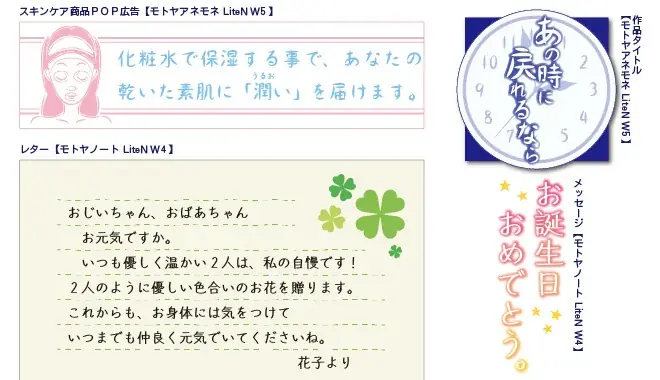 スキンケア商品ＰＯＰ広告【モトヤアネモネ LiteN W5】
化粧水で保湿する事で、あなたの
乾いた素肌に「潤い」を届けます。
うるお
レター【モトヤノート LiteN W4】
おじいちゃん、おばあちゃん
お元気ですか。
いつも優しく温かい２人は、私の自慢です！
２人のように優しい色合いのお花を贈ります。
これからも、お身体には気をつけて
いつまでも仲良く元気でいてくださいね。
花子より
作品タイトル
【モトヤアネモネ LiteN W5】
あの時に
戻れるなら
10
9
8
7
2
3
4
5
メッセージ【モトヤノート LiteN W4】
お誕生日
おめでとう。